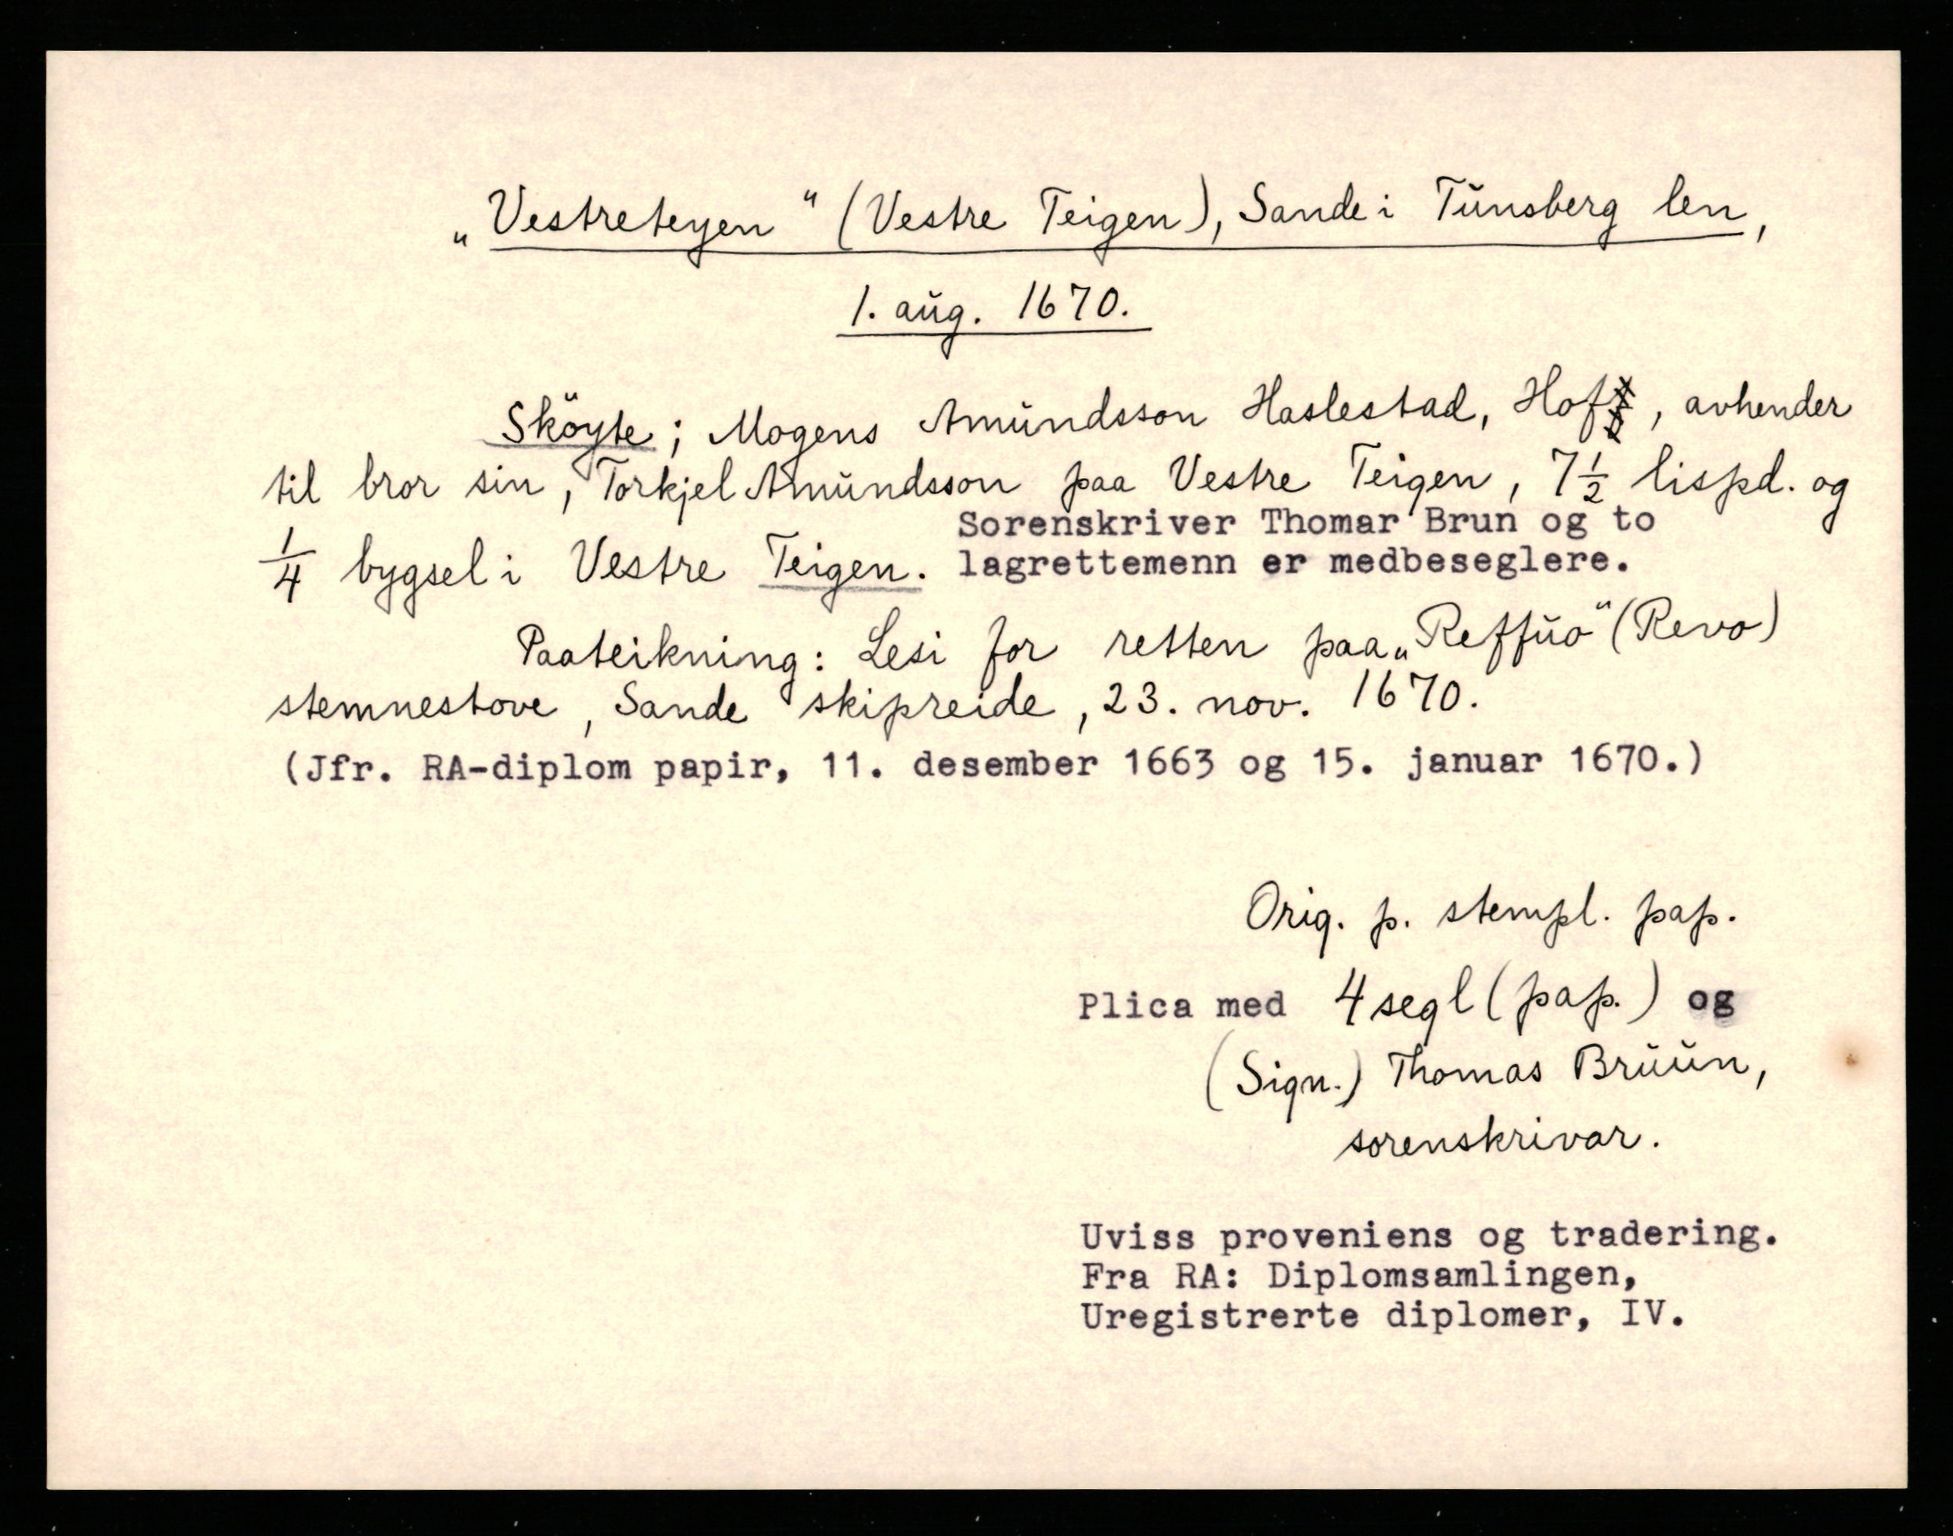 „Vestreteyen" (Vestre Teigen), Sande i Tŭnsberg len,
1. aŭg. 1670.
Sköyte; Mogens Amŭndsson Haslestad, Hof, avhender
til bror sin, Torkjel Amŭndsson paa Vestre Teigen, 7½ lispd. og
¼ bygsel i Vestre Teigen. Sorenskriver Thomar Brun og to
lagrettemenn er medbeseglere.
Paateikning: Lesi for retten paa „Reffŭo" (Revo)
stemnestove, Sande skipreide, 23. nov. 1670.
(Jfr. RA-diplom papir, 11. desember 1663 og 15. januar 1670.)
Orig. p. stempl. pap.
Plica med 4 segl (pap.) og
(Sign.) Thomas Brŭŭn,
sorenskrivar.
Uviss proveniens og tradering.
Fra RA: Diplomsamlingen,
Uregistrerte diplomer, IV.